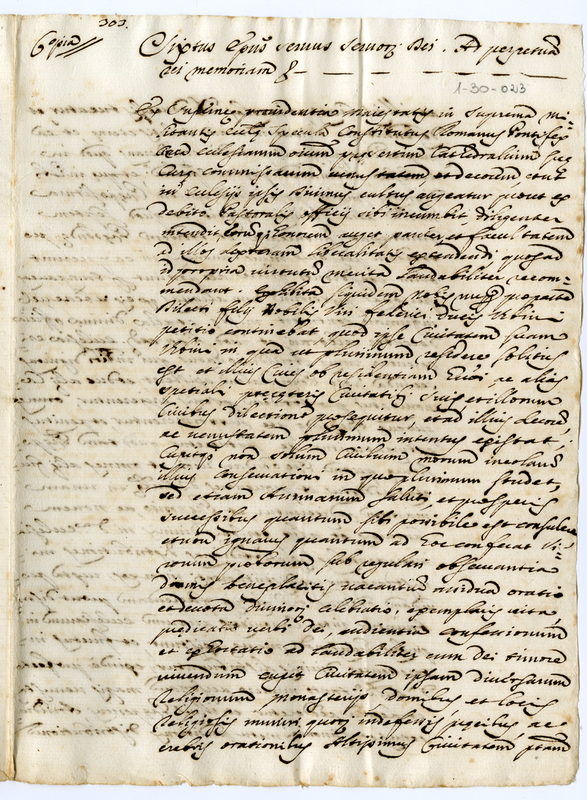 303.
Copia
Sixtus Epus servus servor Dei. Ad perpetuā
rei memoriam
1-30-023
Ex
in suprema mi=
litantis Constitutus Romanus Pontifex
ecclesiarum Cathedralium
curae commissarum venustatem et decorem, et ut
in Ecclesijs ipsis Divinus cultus augeatur prout ex
debito Pastoralis officij sibi incumbit diligenter
intendit, honorem auget pariter et facultatem
ad illos liberalitatis extendendi quos ad
id propria virtutum merita laudabiliter recom=
mendant. siquidem nobis nuper pro parte
Dilecti filij Nobilis Viri Federici Ducis Urbini
petitio continebat quod ipse Civitatem suam
Urbini in qua ut plurimum residere solitus
est et illius Cives ob residentiam ac alias
speciali Civitatis suis, et illorum
Civibus dilectione prosequitur, et ad illius decorē
ac venustatem plurimum intentus existat,
Cupitque non solum Civilium morum incolarū
illius conservationi in quo plurimum studet,
sed etiam Animarum saluti, et prosperis
successibus quantum sibi possibile est consulere
et non ignarus quantum ad hoc conferat Vi=
rorum proborum sub regulari observantia
beneplacitis vacantiū assidua oratio
et devota divinor celebratio, exemplaris vita
predicatio verbi Dei, audientia confessionum
et exhortatio ad laudabiliter cum Dei timore
vivendum cupit Civitatem ipsam diversarum
Religionum monasterijs, domibus et locis
Religiosis muniri quor indefessis precibus ac
crebris orationibus Altissimus Civitatem